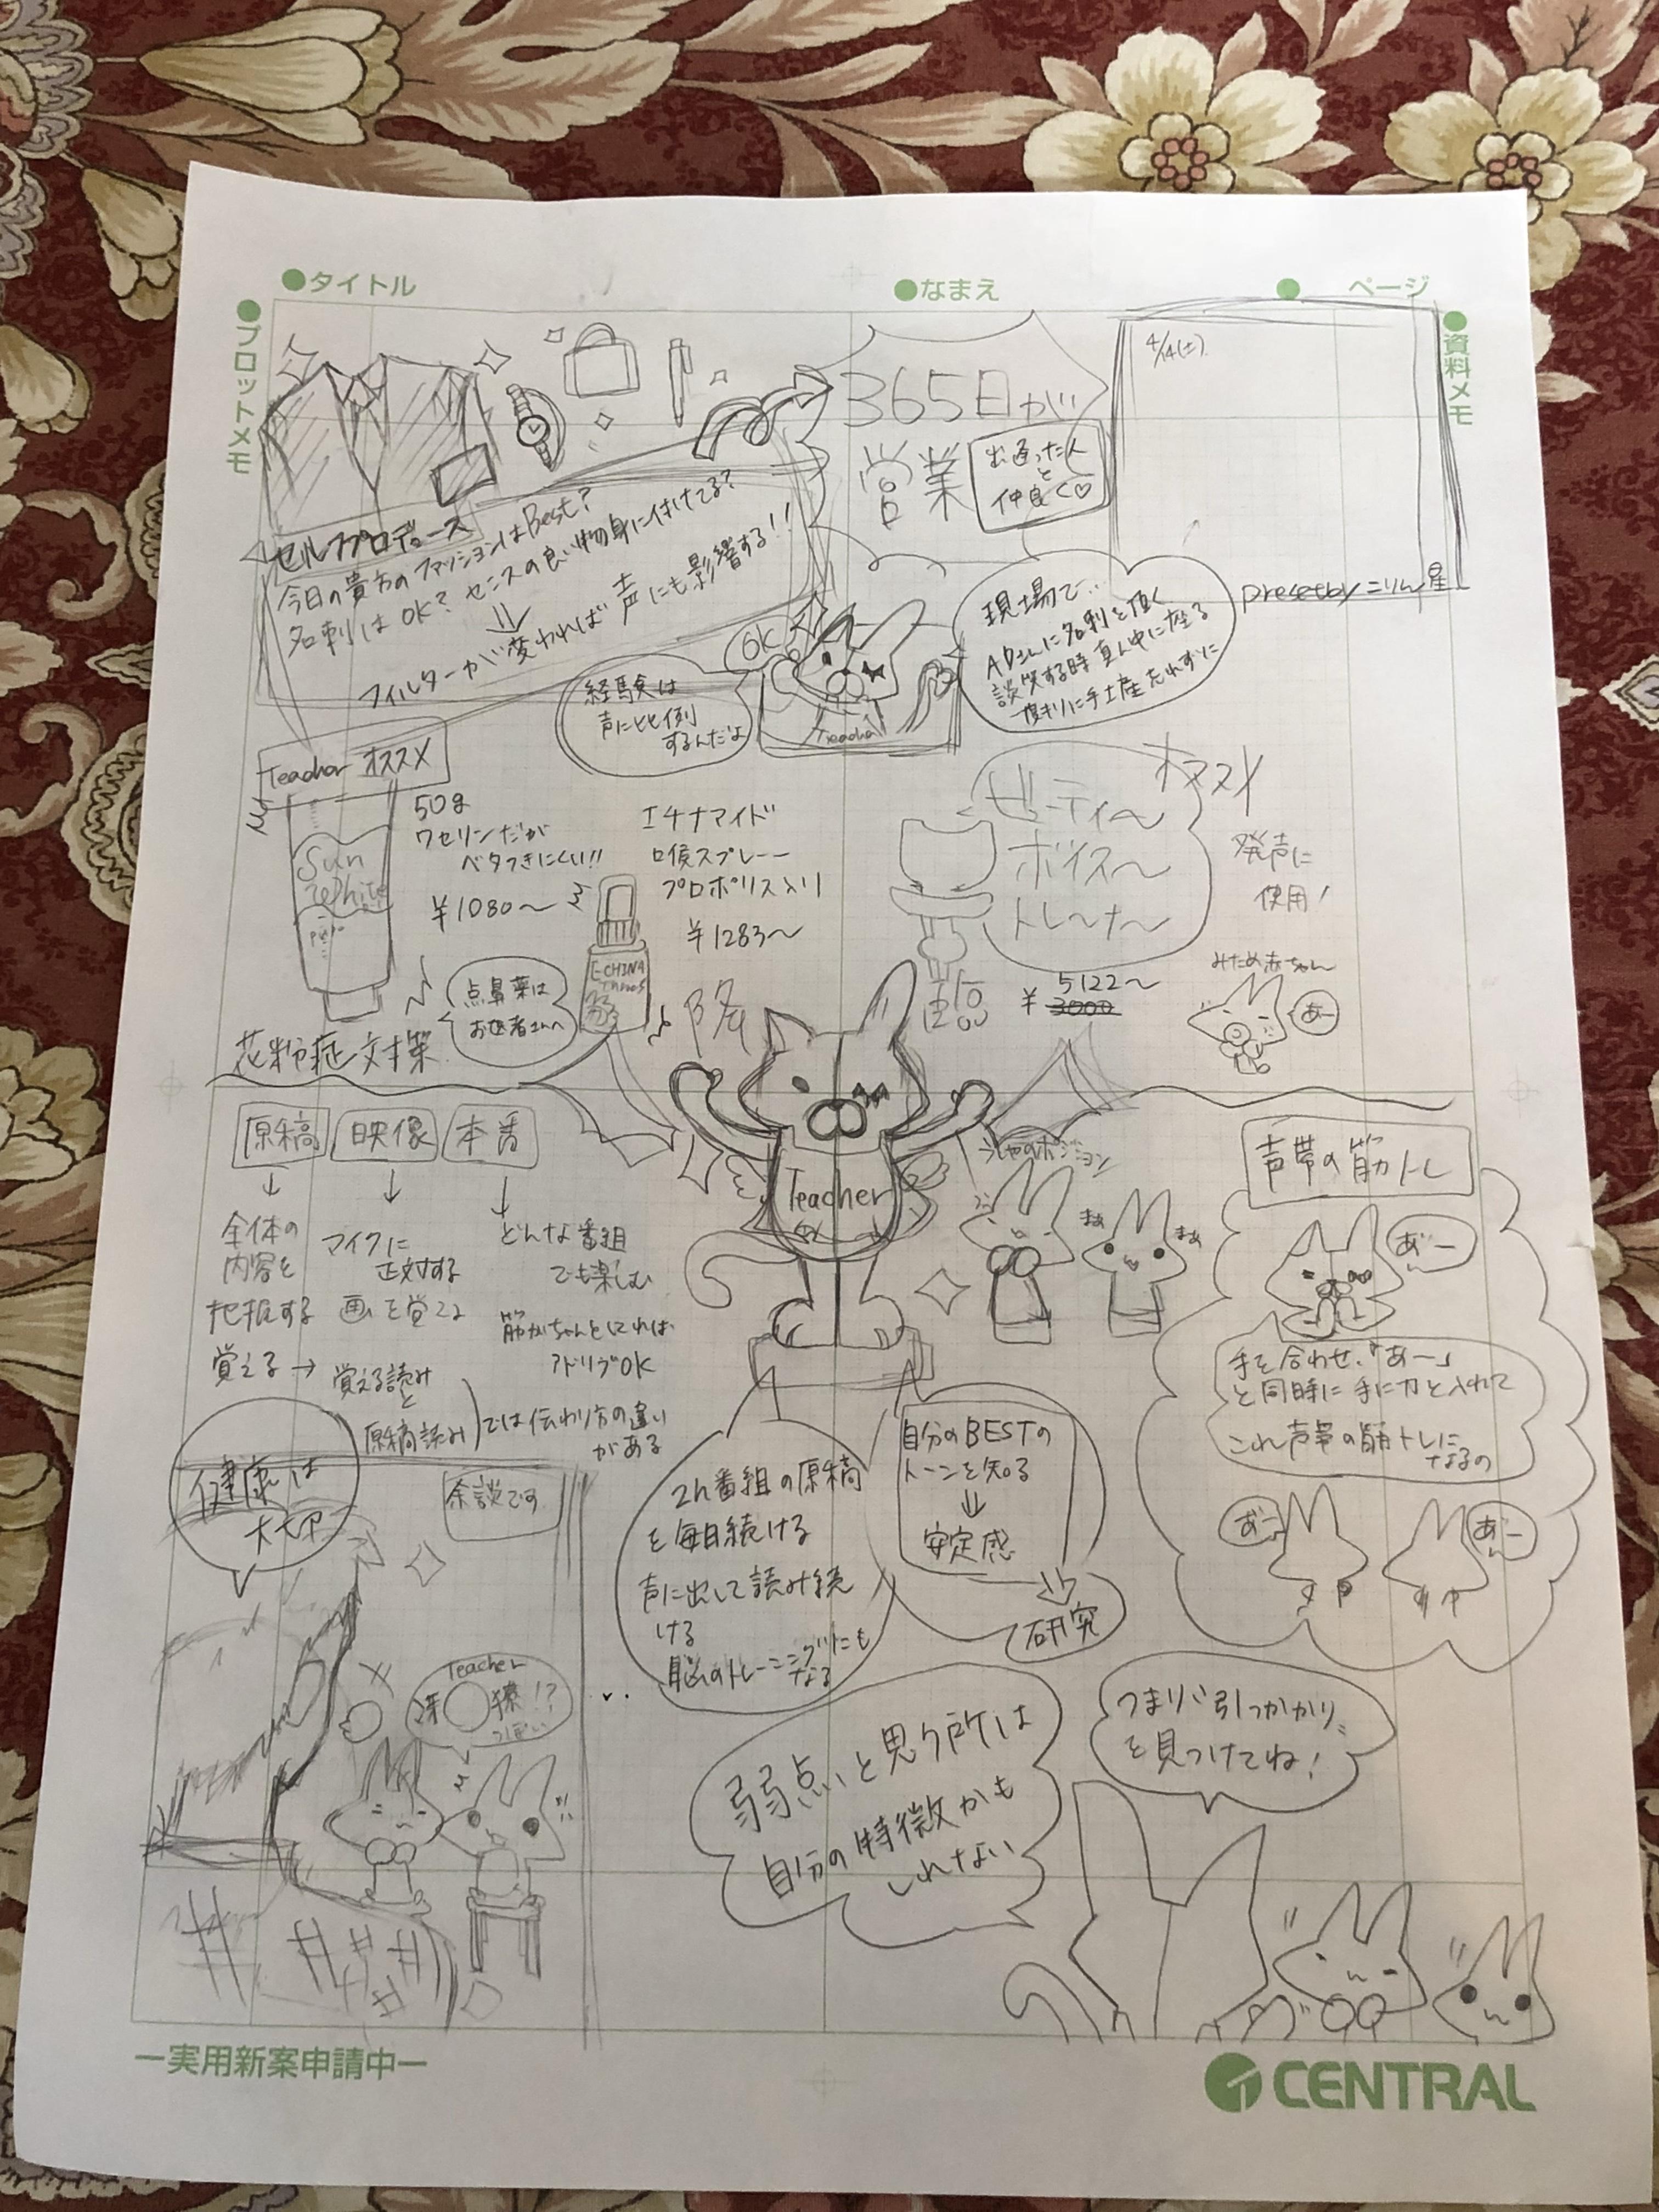 ●タイトル
●なまえ
● ページ
●プロットメモ
●資料メモ
4/14(土)
365日が
営業
出逢った人
と
仲良く♡
セルフプロデュース
今日の貴方のファッションはBest?
名刺はOK? センスの良い物身に付けてる?
⇓
フィルターが変われば声にも影響する!!
OK
経験は
声に比例
するんだよ
Teacher
現場で…
ADさんに名刺を頂く
談笑する時真ん中に座る
presetby こりん星
Teacher オススメ
Sun
White
50g
ワセリンだが
ベタつきにくい!!
¥1080～
エチナマイド
口喉スプレー
プロポリス入り
¥1283～
E-CHINA
点鼻薬は
お医者さんへ
花粉症対策
オススメ
ビューティー
ボイス～
トレ～ナ～
発声に
使用!
¥ 5122～
3000
みため赤ちゃん
あー
降
臨
原稿
映像
本番
↓
↓
↓
全体の
内容を
把握する
覚える→
マイクに
正対する
画を覚える
覚える読み
と
原稿読み
では伝わり方の違い
がある
どんな番組
でも楽しむ
筋がちゃんとしてれば
アドリブOK
Teacher
まぁ
まぁ
声帯の筋トレ
あ゛ー
手を合わせ、「あー」
と同時に手に力を入れて
これ声帯の筋トレに
なるの
あ゛ー
あ゛ー
健康は
大切
余談です
Teacher
2h番組の原稿
を毎日続ける
声に出して読み続
ける
脳のトレーニングにも
なる
自分のBESTの
トーンを知る
⇓
安定感
研究
弱点と思う所は
自分の特徴かも
しれない
つまり"引っかかり"
を見つけてね!
ー実用新案申請中ー
CENTRAL